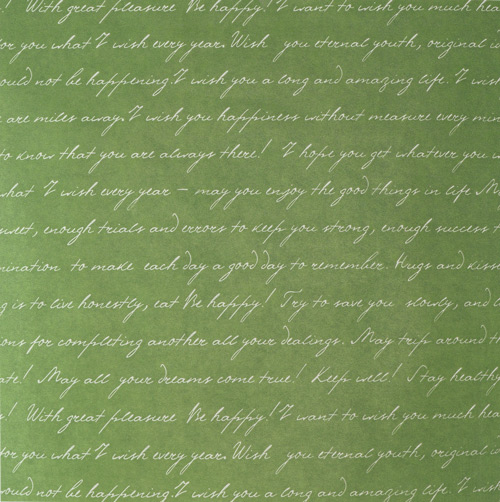 ! With great pleasure Be happy! I want to wish you much hea
or you what I wish every year. Wish you eternal youth, original i
ould not be happening. I wish you a long and amazing life. I wis
are miles away. I wish you happiness without measure every min
to know that you are always there! I hope you get whatever you w
what I wish every year – may you enjoy the good things in life M
sweet, enough trials and errors to keep you strong, enough success t
mination to make each day a good day to remember. Hugs and kiss
g is to live honestly, eat Be happy! Try to save you slowly, and
ons for completing another all your dealings. May trip around th
ate! May all your dreams come true! Keep well! Stay healthy
! With great pleasure Be happy! I want to wish you much hea
or you what I wish every year. Wish you eternal youth, original i
ould not be happening. I wish you a long and amazing life. I wis